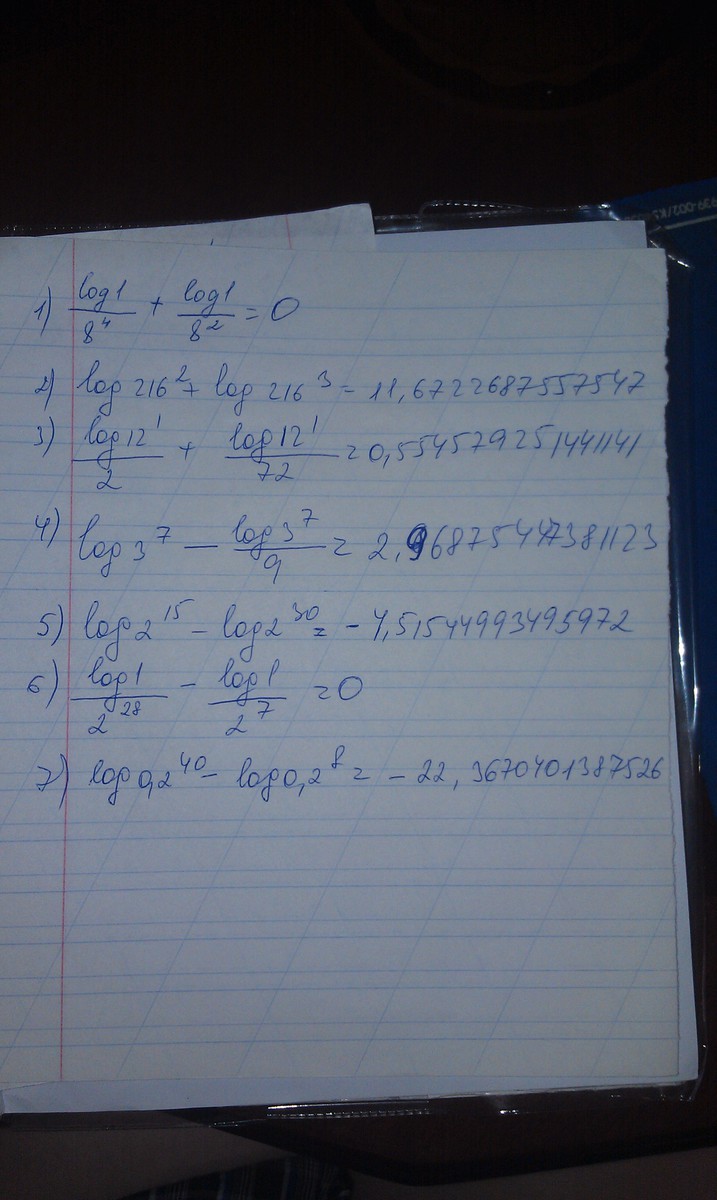 1) log1/8⁴ + log1/8² = 0
2) log 216² + log 216³ = 11,6722687557547
3) log12¹/2 + log12¹/72 = 0,554579251441141
4) log3⁷ − log3⁷/9 = 2,96875447381123
5) log2¹⁵ − log2³⁰ = −4,51544993495972
6) log1/2²⁸ − log1/2⁷ = 0
7) log0,2⁴⁰ − log0,2⁸ = −22,3670401387526